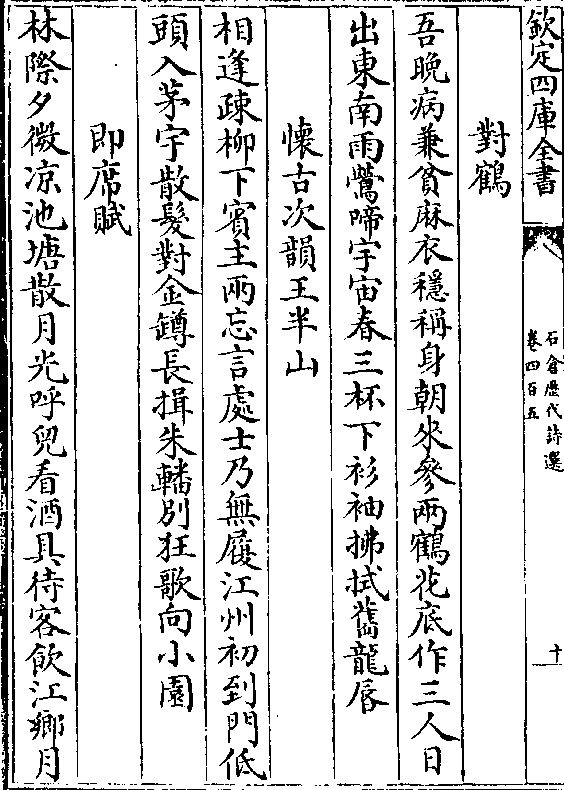 欽定四庫全書
石倉歷代詩選
卷四百五
十
對鶴
吾晚病兼貧麻衣穩稱身朝來參兩鶴花底作三人日
出東南雨鶯啼宇宙春三杯下衫袖拂拭舊龍唇
懷古次韻王半山
相逢疎柳下賓主兩忘言處士乃無屐江州初到門低
頭入茅宇散髮對金罇長揖朱轓別狂歌向小園
即席賦
林際夕微凉池塘散月光呼兒看酒具待客飲江鄉月